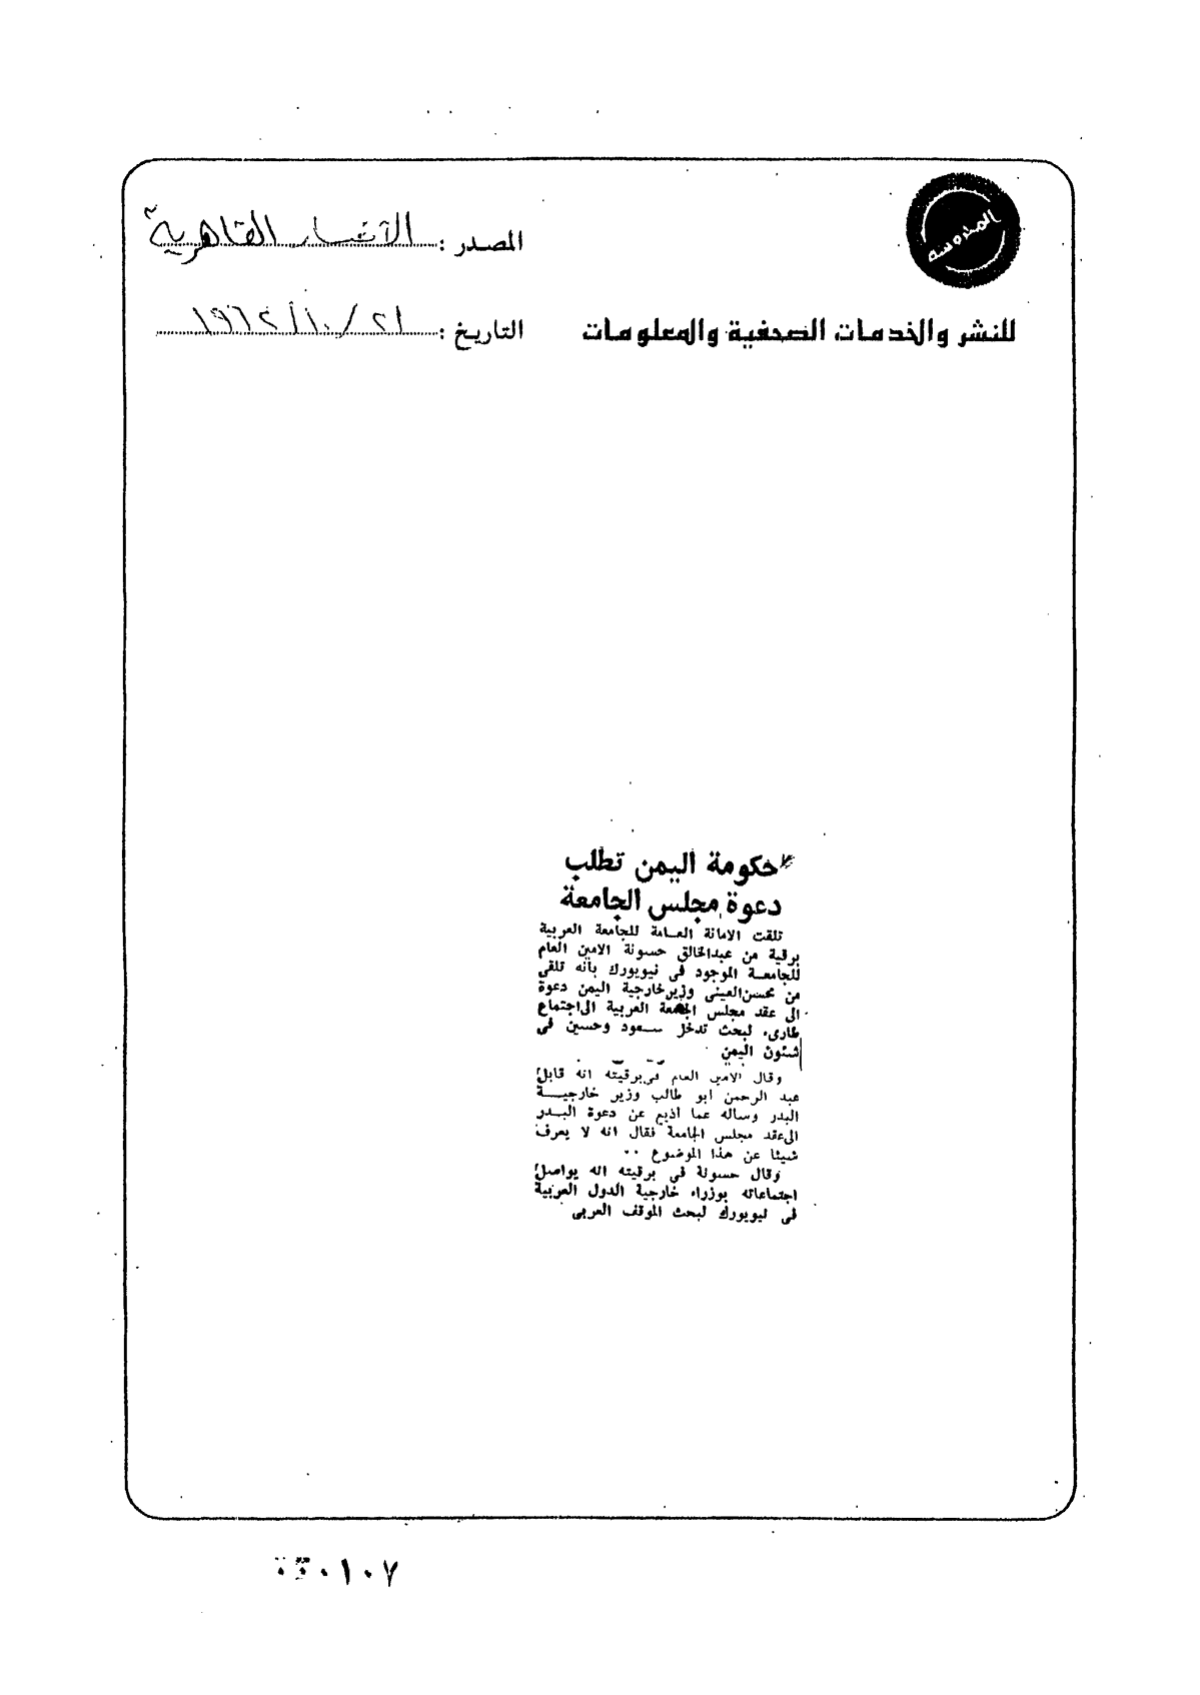 المحروسة
المصدر : الأخبار القاهرية
للنشر والخدمات الصحفية والمعلومات
التاريخ : ٢١ / ١٠ / ١٩٦٢
حكومة اليمن تطلب
دعوة مجلس الجامعة
تلقت الامانة العامة للجامعة العربية
برقية من عبدالخالق حسونة الامين العام
للجامعة الموجود فى نيويورك بأنه تلقى
من محسن العينى وزير خارجية اليمن دعوة
الى عقد مجلس الجامعة العربية الى اجتماع
طارىء لبحث تدخل سعود وحسين فى
شئون اليمن
وقال الامين العام فى برقيته انه قابل
عبد الرحمن ابو طالب وزير خارجية
البدر وساله عما اذيع عن دعوة البدر
الى عقد مجلس الجامعة فقال انه لا يعرف
شيئا عن هذا الموضوع ..
وقال حسونة فى برقيته انه يواصل
اجتماعاته بوزراء خارجية الدول العربية
فى نيويورك لبحث الموقف العربى